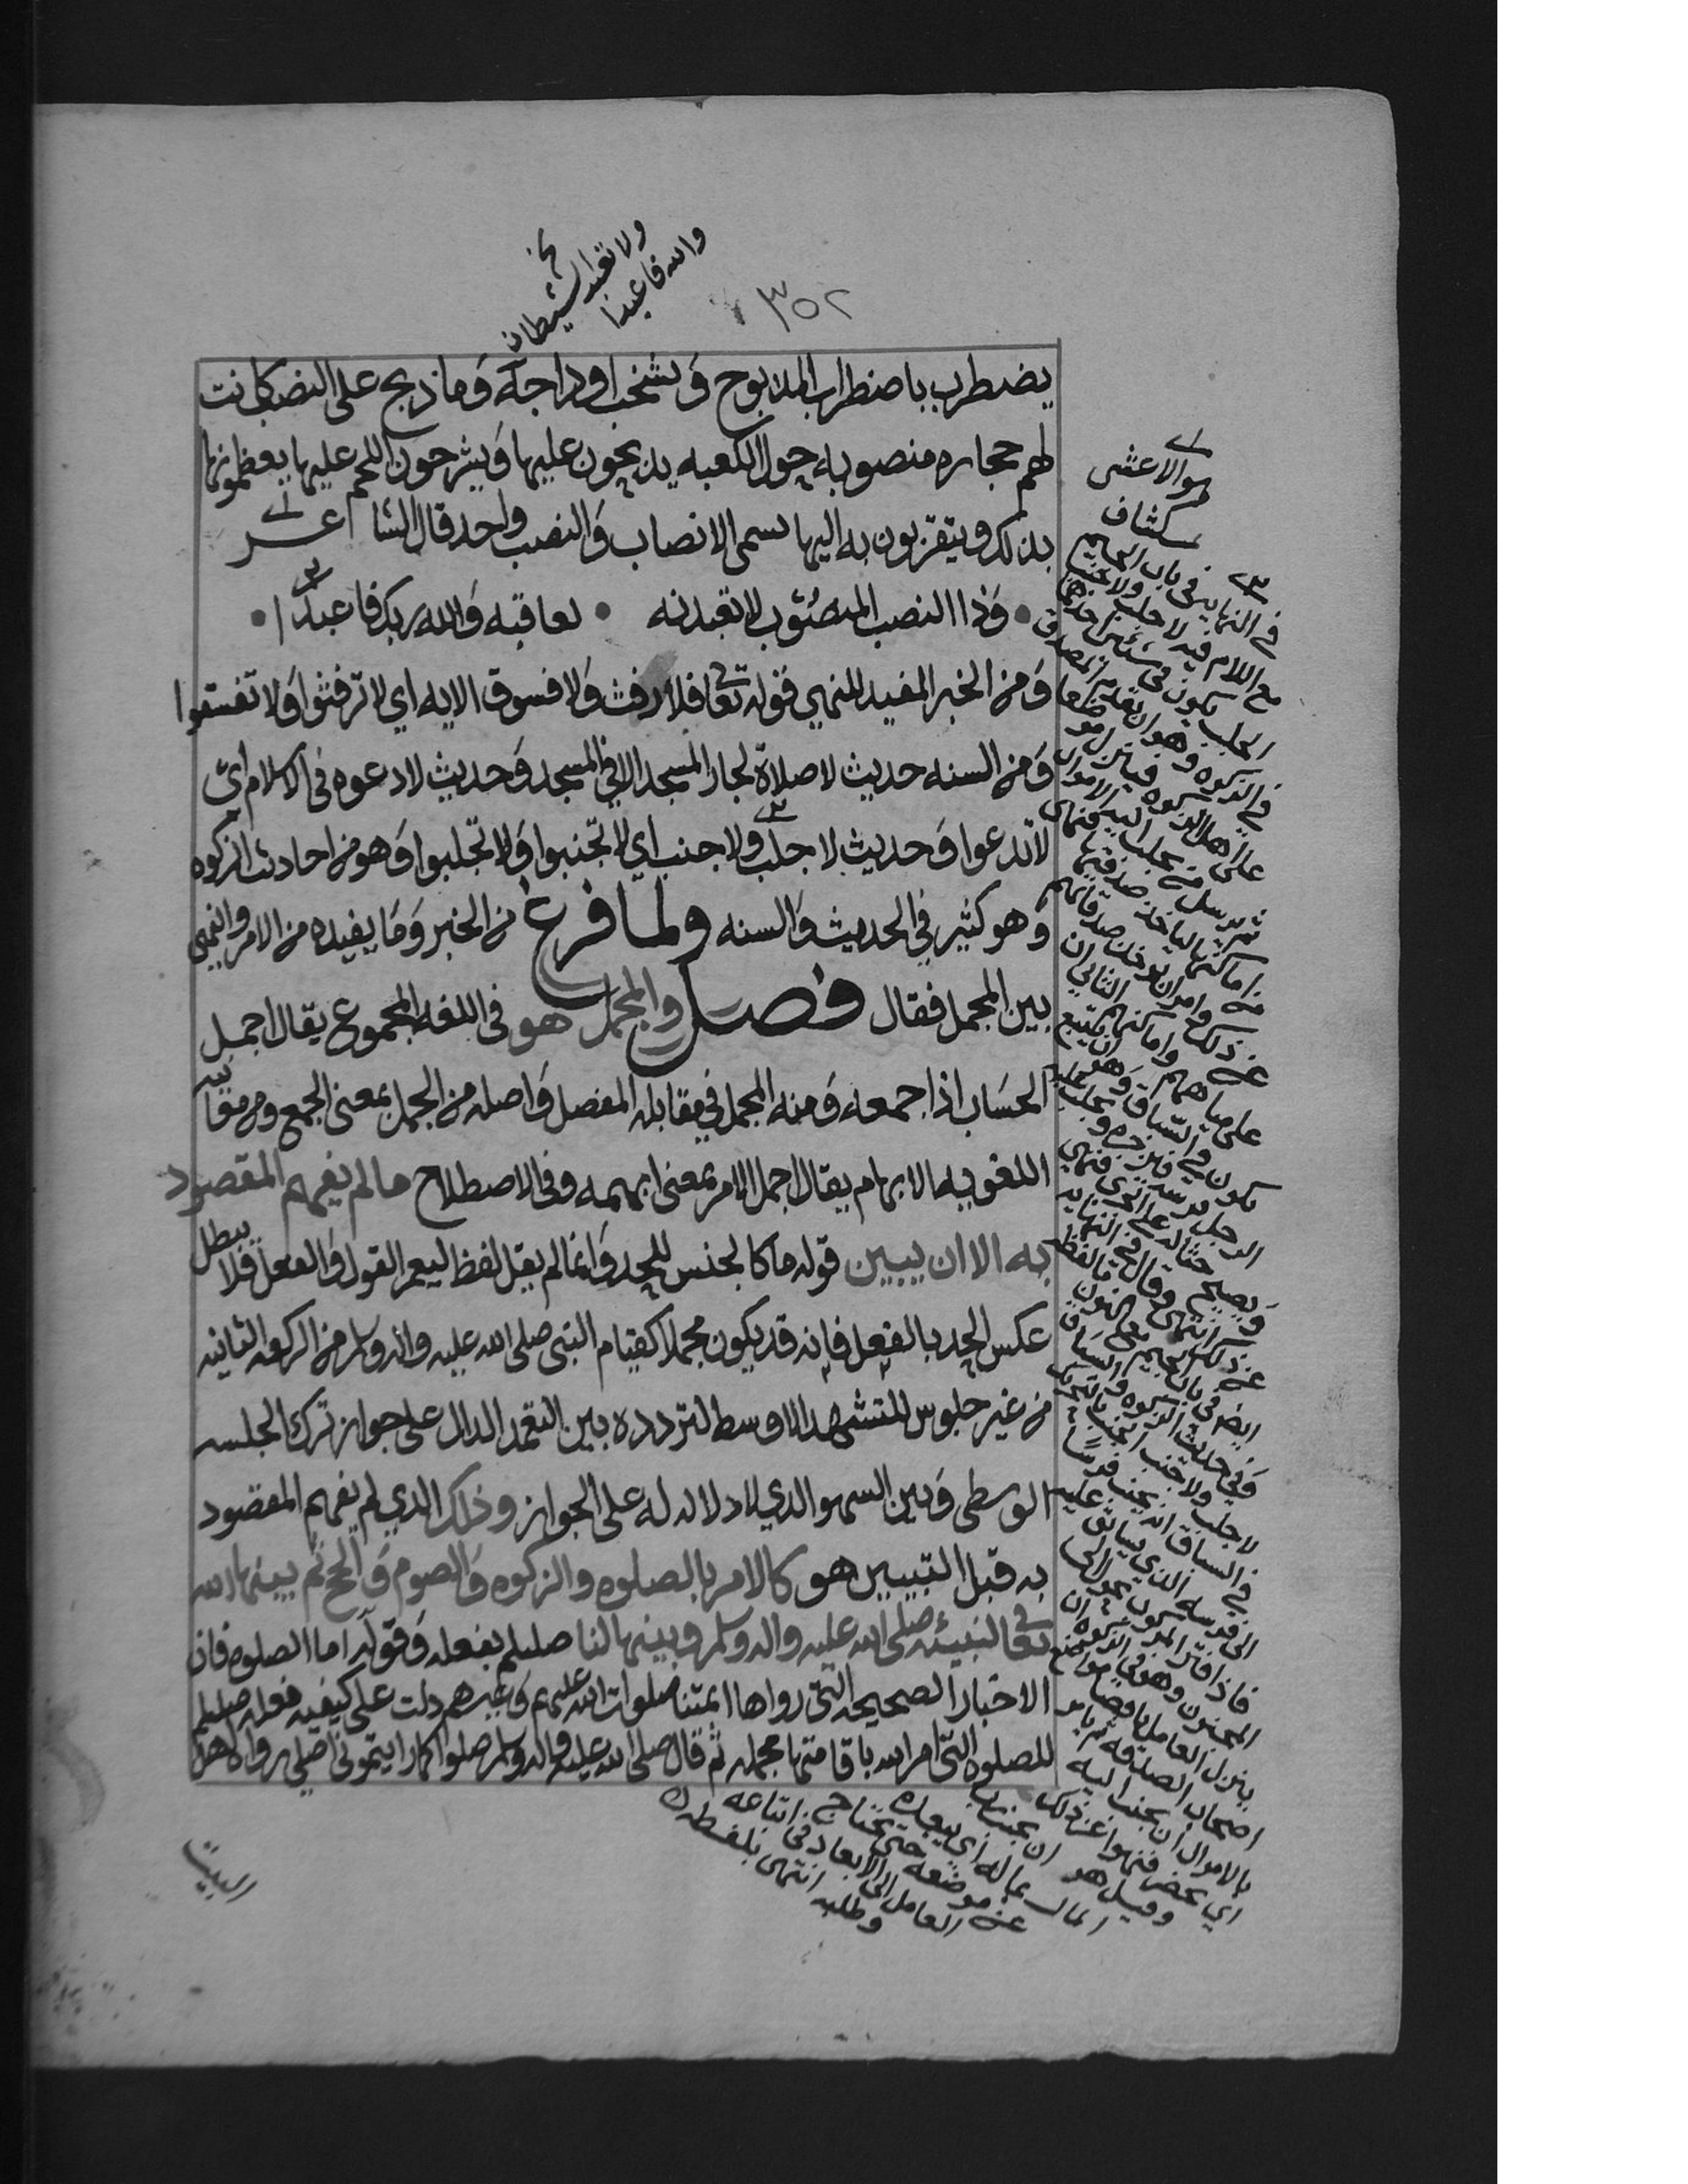 ٣٥٢
ولا تعبد الشيطان
والله فاعبدا
يضطرب باضطراب المذبوح وتشخب اوداجه وما ذبح على النصب كانت
لهم حجاره منصوبه حول الكعبه يذبحون عليها ويشرحون اللحم عليها يعظمونها
بذلك ويتقربون به اليها تسمى الانصاب والنصب واحد قال الشاعر
وذا النصب المنصوب لا تعبدنه • لعاقبه والله ربك فاعبدا •
ومن الخبر المفيد للنهي قوله تعالى فلا رفث ولا فسوق الايه اي لا ترفثوا ولا تفسقوا
ومن السنه حديث لا صلاة لجار المسجد الا في المسجد وحديث لا دعوه في الاسلام اي
لا تدعوا وحديث لا جلب ولا جنب اي لا تجنبوا ولا تجلبوا وهو من احاديث الزكوه
وهو كثير في الحديث والسنه ولما فرغ من الخبر وما يفيده من الامر والنهي
بين المجمل فقال فصل والمجمل هو في اللغه المجموع يقال اجمل
الحساب اذا جمعه ومنه المجمل في مقابله المفصل واصله من الجمل بمعنى الجمع ومن معانيه
اللغويه الابهام يقال اجمل الامر بمعنى ابهمه وفي الاصطلاح ما لم يفهم المقصود
به الا ان يبين قوله ما كالجنس للحد وانما لم يقل لفظ ليعم القول والفعل فلا يبطل
عكس الحد بالفعل فانه قد يكون مجملا كقيام النبي صلى الله عليه واله وسلم من الركعه الثانيه
من غير جلوس للتشهد الاوسط لتردده بين التعمد الدال على جواز ترك الجلسه
الوسطى وبين السهو الذي لا دلاله له على الجواز وذلك الذي لم يفهم المقصود
به قبل التبيين هو كالامر بالصلوه والزكوه والصوم والحج ثم بينها الله
تعالى لنبيئه صلى الله عليه واله وسلم وبينها لنا صلى الله عليه واله وسلم بفعله وقوله اما الصلوه فان
الاخبار الصحيحه التي رواها ائمتنا صلوات الله عليهم وغيرهم دلت على كيفيه فعله صلى الله عليه واله وسلم
للصلوه التي امر الله باقامتها مجمله ثم قال صلى الله عليه واله وسلم صلوا كما رايتموني اصلي رواه اهل
البيت
هو الاعشى
كشاف
في النهايه في باب الجيم
مع اللام فيه لا جلب ولا جنب
الجلب يكون في شيئين احدهما
في الزكوه وهو ان يقدم المصدق
على اهل الزكوه فينزل موضعا
ثم يرسل من يجلب اليه الاموال
من اماكنها لياخذ صدقتها فنهي
عن ذلك وامر ان توخذ صدقاتهم
على مياههم واماكنهم الثاني ان
يكون في السباق وهو ان يتبع
الرجل فرسه فيزجره ويجلب عليه
ويصيح حثا له على الجري فنهي
عن ذلك انتهى وقال في النهايه
ايضا في باب الجيم مع النون ما لفظه
وفي حديث الزكوه والسباق
لا جلب ولا جنب الجنب بالتحريك
في السباق ان يجنب فرسا
الى فرسه الذي يسابق عليه
فاذا فتر المركوب تحول الى
المجنوب وهو في الزكوه ان
ينزل العامل باقصى مواضع
اصحاب الصدقه ثم يامر
بالاموال ان تجنب اليه
اي تحضر فنهوا عن ذلك
وقيل هو ان يجنب رب
المال بماله اي يبعده
عن موضعه حتى يحتاج
العامل الى الابعاد في اتباعه
وطلبه انتهى بلفظه